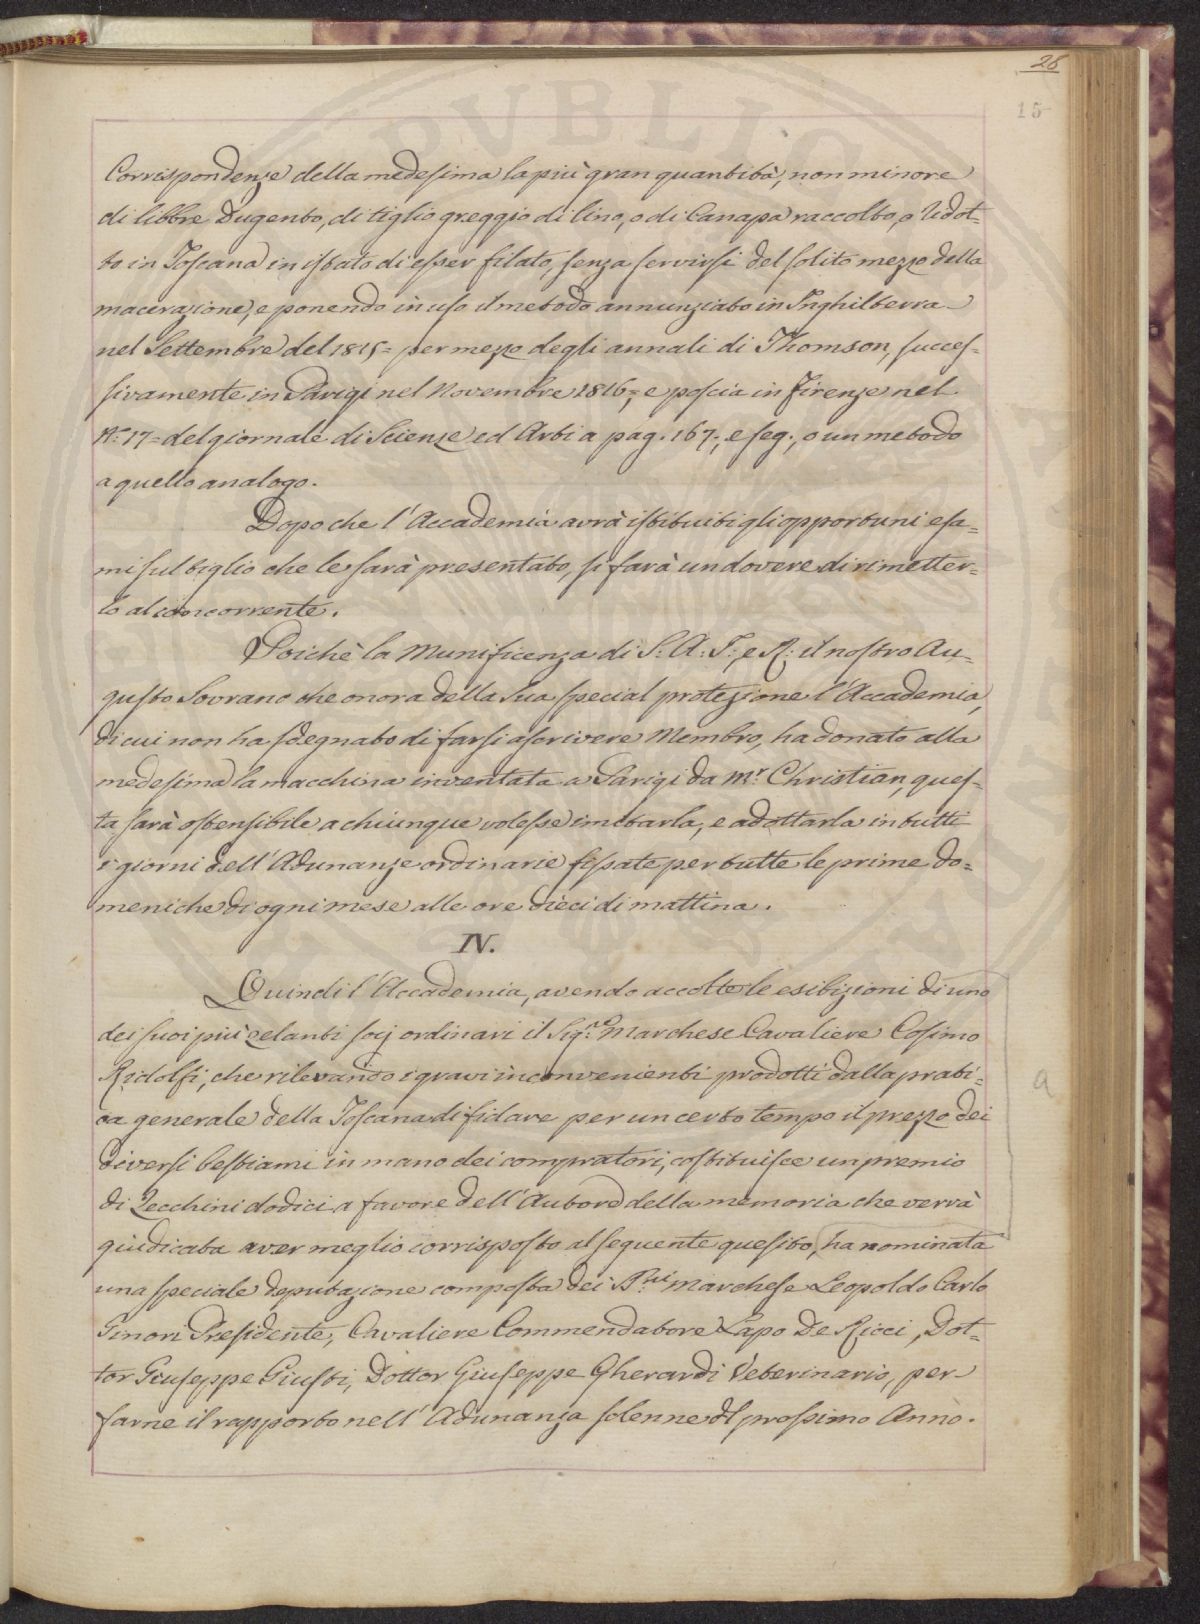 26
15
Corrispondenze della medesima la più gran quantità, non minore
di libbre Dugento, di tiglio greggio di lino, o di Canapa raccolto, o ridot=
to in Toscana in istato di esser filato, senza servirsi del solito mezzo della
macerazione, e ponendo in uso il metodo annunziato in Inghilterra
nel Settembre del 1815= per mezzo degli annali di Thomson, succes=
sivamente in Parigi nel Novembre 1816=, e poscia in Firenze nel
N.° 17= del giornale di Scienze ed Arti a pag. 167., e seg., o un metodo
a quello analogo.
Dopo che l'Accademia avrà istituiti gli opportuni esa=
mi sul tiglio che le sarà presentato, si farà un dovere di rimetter=
lo al concorrente.
Poichè la Munificenza di S: A: I: e R: il nostro Au=
gusto Sovrano che onora della Sua special protezione l'Accademia,
di cui non ha sdegnato di farsi ascrivere Membro, ha donato alla
medesima la macchina inventata a Parigi da Mr. Christian, ques=
ta sarà ostensibile a chiunque volesse imitarla, e adottarla in tutti
i giorni dell'Adunanze ordinarie fissate per tutte le prime do=
meniche di ogni mese alle ore dieci di mattina.
IV.
Quindi l'Accademia, avendo accolte le esibizioni di uno
dei suoi più zelanti socj ordinari il Sig.re Marchese Cavaliere Cosimo
Ridolfi, che rilevando i gravi inconvenienti prodotti dalla prati=
ca generale della Toscana di fidare per un certo tempo il prezzo dei
diversi bestiami in mano dei compratori, costituisce un premio
di Zecchini dodici a favore dell'Autore della memoria che verrà
giudicata aver meglio corrisposto al seguente quesito, ha nominata
una speciale deputazione composta dei Sri Marchese Leopoldo Carlo
Ginori Presidente, Cavaliere Commendatore Lapo De Ricci, Dot=
tor Giuseppe Giusti, Dottor Giuseppe Gherardi Veterinario, per
farne il rapporto nell'Adunanza solenne del prossimo Anno.
a